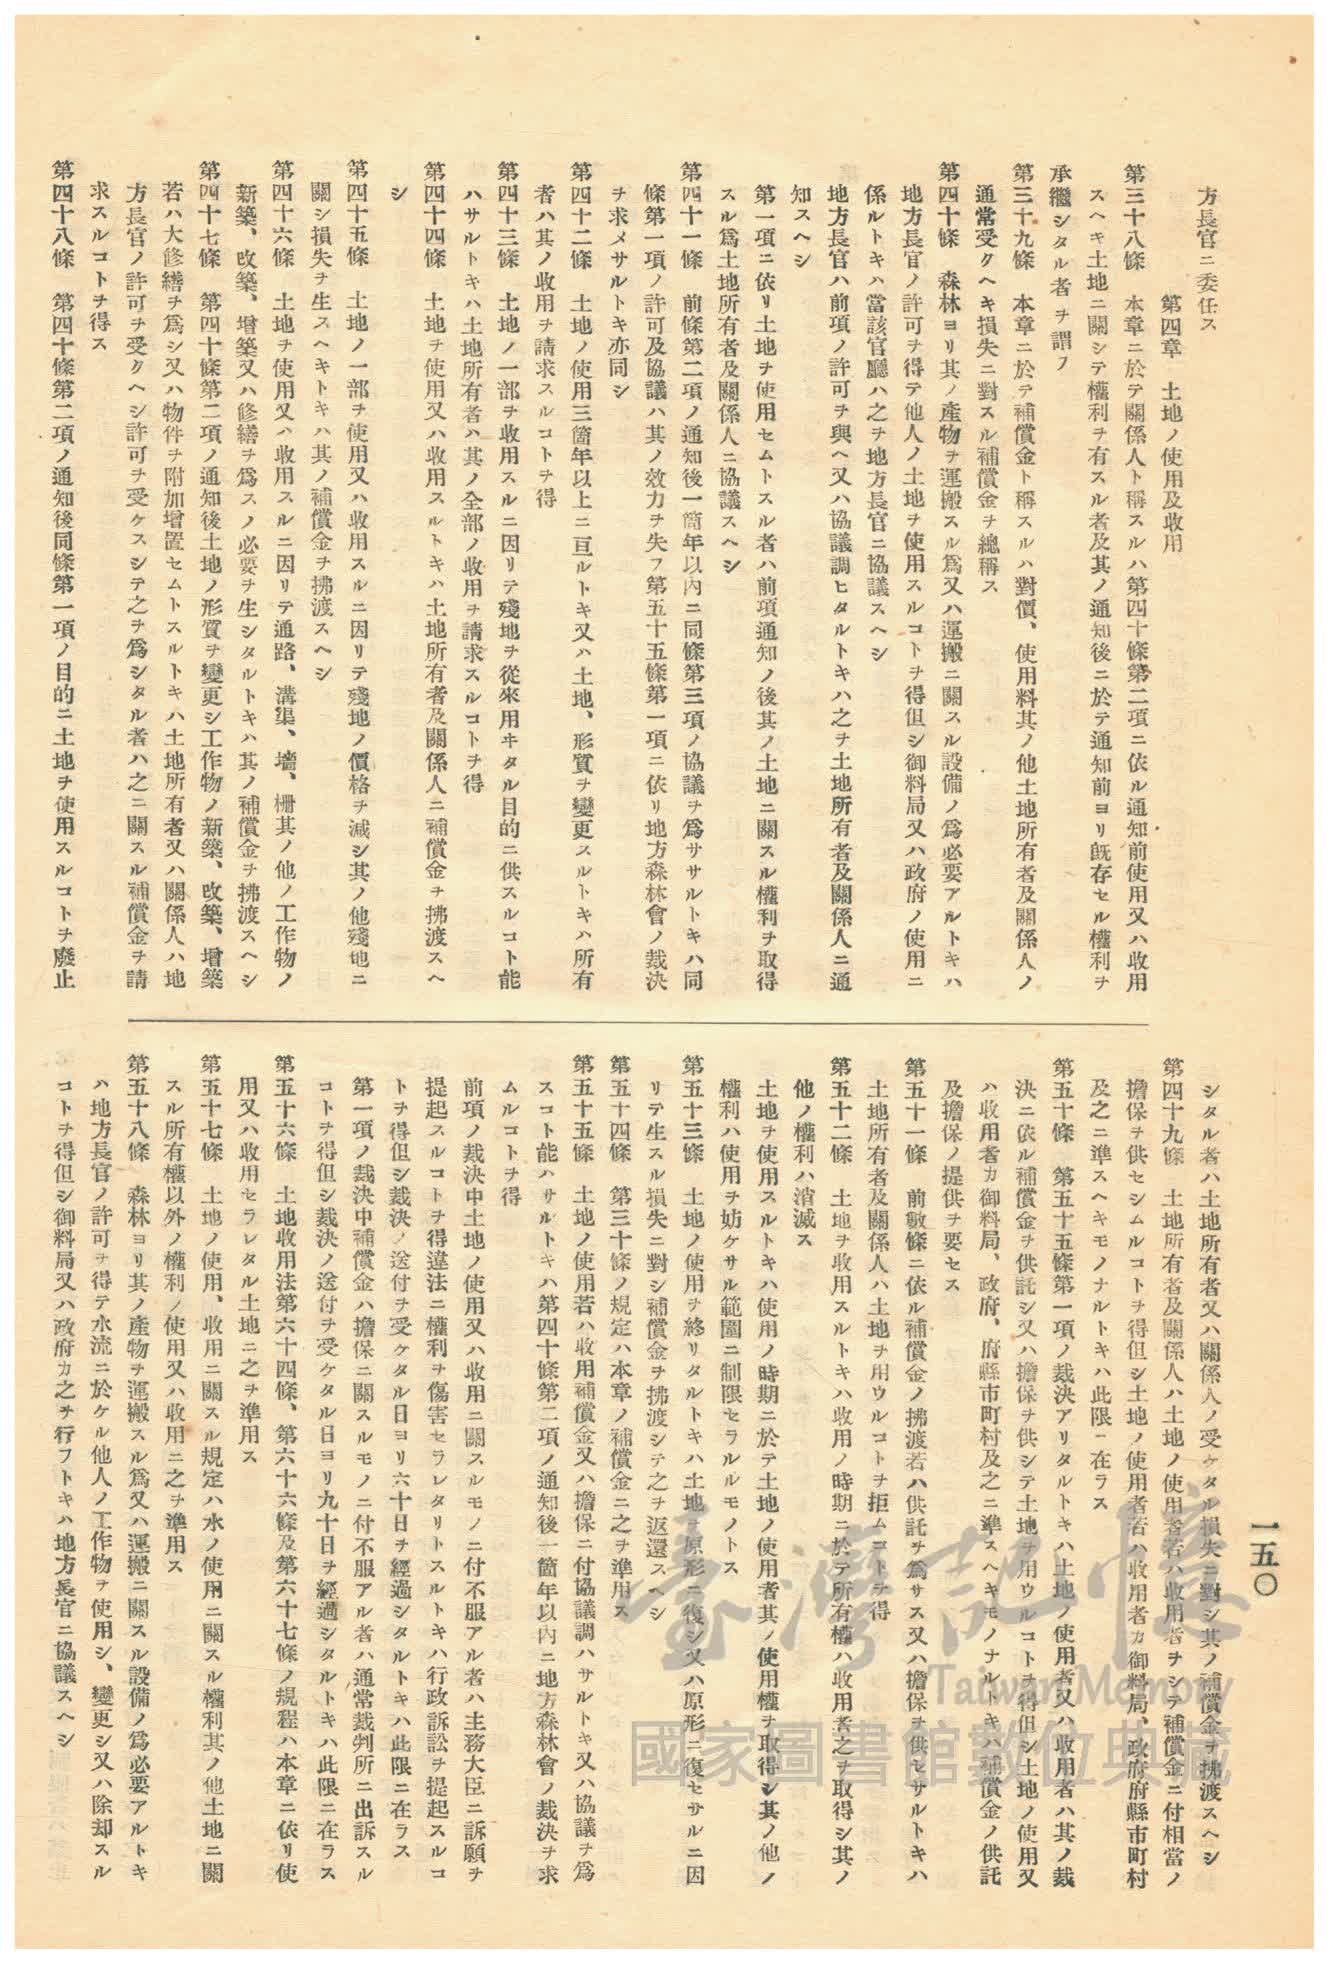 一五〇
方長官ニ委任ス
第四章　土地ノ使用及收用
第三十八條　本章ニ於テ關係人ト稱スルハ第四十條第二項ニ依ル通知前使用又ハ收用
スヘキ土地ニ關シテ權利ヲ有スル者及其ノ通知後ニ於テ通知前ヨリ既存セル權利ヲ
承繼シタル者ヲ謂フ
第三十九條　本章ニ於テ補償金ト稱スルハ對價、使用料其ノ他土地所有者及關係人ノ
通常受クヘキ損失ニ對スル補償金ヲ總稱ス
第四十條　森林ヨリ其ノ產物ヲ運搬スル爲又ハ運搬ニ關スル設備ノ爲必要アルトキハ
地方長官ノ許可ヲ得テ他人ノ土地ヲ使用スルコトヲ得但シ御料局又ハ政府ノ使用ニ
係ルトキハ當該官廳ハ之ヲ地方長官ニ協議スヘシ
地方長官ハ前項ノ許可ヲ與ヘ又ハ協議調ヒタルトキハ之ヲ土地所有者及關係人ニ通
知スヘシ
第一項ニ依リ土地ヲ使用セムトスル者ハ前項通知ノ後其ノ土地ニ關スル權利ヲ取得
スル爲土地所有者及關係人ニ協議スヘシ
第四十一條　前條第二項ノ通知後一箇年以內ニ同條第三項ノ協議ヲ爲ササルトキハ同
條第一項ノ許可及協議ハ其ノ效力ヲ失フ第五十五條第一項ニ依リ地方森林會ノ裁決
ヲ求メサルトキ亦同シ
第四十二條　土地ノ使用三箇年以上ニ亘ルトキ又ハ土地、形質ヲ變更スルトキハ所有
者ハ其ノ收用ヲ請求スルコトヲ得
第四十三條　土地ノ一部ヲ收用スルニ因リテ殘地ヲ從來用ヰタル目的ニ供スルコト能
ハサルトキハ土地所有者ハ其ノ全部ノ收用ヲ請求スルコトヲ得
第四十四條　土地ヲ使用又ハ收用スルトキハ土地所有者及關係人ニ補償金ヲ拂渡スヘ
シ
第四十五條　土地ノ一部ヲ使用又ハ收用スルニ因リテ殘地ノ價格ヲ減シ其ノ他殘地ニ
關シ損失ヲ生スヘキトキハ其ノ補償金ヲ拂渡スヘシ
第四十六條　土地ヲ使用又ハ收用スルニ因リテ通路、溝渠、墻、柵其ノ他ノ工作物ノ
新築、改築、增築又ハ修繕ヲ爲スノ必要ヲ生シタルトキハ其ノ補償金ヲ拂渡スヘシ
第四十七條　第四十條第二項ノ通知後土地ノ形質ヲ變更シ工作物ノ新築、改築、增築
若ハ大修繕ヲ爲シ又ハ物件ヲ附加增置セムトスルトキハ土地所有者又ハ關係人ハ地
方長官ノ許可ヲ受クヘシ許可ヲ受ケスシテ之ヲ爲シタル者ハ之ニ關スル補償金ヲ請
求スルコトヲ得ス
第四十八條　第四十條第二項ノ通知後同條第一項ノ目的ニ土地ヲ使用スルコトヲ廢止
シタル者ハ土地所有者又ハ關係人ノ受ケタル損失ニ對シ其ノ補償金ヲ拂渡スヘシ
第四十九條　土地所有者及關係人ハ土地ノ使用者若ハ收用者ヲシテ補償金ニ付相當ノ
擔保ヲ供セシムルコトヲ得但シ土地ノ使用者若ハ收用者カ御料局、政府府縣市町村
及之ニ準スヘキモノナルトキハ此限ニ在ラス
第五十條　第五十五條第一項ノ裁決アリタルトキハ土地ノ使用者又ハ收用者ハ其ノ裁
決ニ依ル補償金ヲ供託シ又ハ擔保ヲ供シテ土地ヲ用ウルコトヲ得但シ土地ノ使用又
ハ收用者カ御料局、政府、府縣市町村及之ニ準スヘキモノナルトキハ補償金ノ供託
及擔保ノ提供ヲ要セス
第五十一條　前數條ニ依ル補償金ノ拂渡若ハ供託ヲ爲サス又ハ擔保ヲ供セサルトキハ
土地所有者及關係人ハ土地ヲ用ウルコトヲ拒ムコトヲ得
第五十二條　土地ヲ收用スルトキハ收用ノ時期ニ於テ所有權ハ收用者之ヲ取得シ其ノ
他ノ權利ハ消滅ス
土地ヲ使用スルトキハ使用ノ時期ニ於テ土地ノ使用者其ノ使用權ヲ取得シ其ノ他ノ
權利ハ使用ヲ妨ケサル範圍ニ制限セラルルモノトス
第五十三條　土地ノ使用ヲ終リタルトキハ土地ヲ原形ニ復シ又ハ原形ニ復セサルニ因
リテ生スル損失ニ對シ補償金ヲ拂渡シテ之ヲ返還スヘシ
第五十四條　第三十條ノ規定ハ本章ノ補償金ニ之ヲ準用ス
第五十五條　土地ノ使用若ハ收用補償金又ハ擔保ニ付協議調ハサルトキ又ハ協議ヲ爲
スコト能ハサルトキハ第四十條第二項ノ通知後一箇年以內ニ地方森林會ノ裁決ヲ求
ムルコトヲ得
前項ノ裁決中土地ノ使用又ハ收用ニ關スルモノニ付不服アル者ハ主務大臣ニ訴願ヲ
提起スルコトヲ得違法ニ權利ヲ傷害セラレタリトスルトキハ行政訴訟ヲ提起スルコ
トヲ得但シ裁決ノ送付ヲ受ケタル日ヨリ六十日ヲ經過シタルトキハ此限ニ在ラス
第一項ノ裁決中補償金ハ擔保ニ關スルモノニ付不服アル者ハ通常裁判所ニ出訴スル
コトヲ得但シ裁決ノ送付ヲ受ケタル日ヨリ九十日ヲ經過シタルトキハ此限ニ在ラス
第五十六條　土地收用法第六十四條、第六十六條及第六十七條ノ規程ハ本章ニ依リ使
用又ハ收用セラレタル土地ニ之ヲ準用ス
第五十七條　土地ノ使用、收用ニ關スル規定ハ水ノ使用ニ關スル權利其ノ他土地ニ關
スル所有權以外ノ權利ノ使用又ハ收用ニ之ヲ準用ス
第五十八條　森林ヨリ其ノ產物ヲ運搬スル爲又ハ運搬ニ關スル設備ノ爲必要アルトキ
ハ地方長官ノ許可ヲ得テ水流ニ於ケル他人ノ工作物ヲ使用シ、變更シ又ハ除却スル
コトヲ得但シ御料局又ハ政府カ之ヲ行フトキハ地方長官ニ協議スヘシ
臺灣記憶
Taiwan Memory
國家圖書館數位典藏